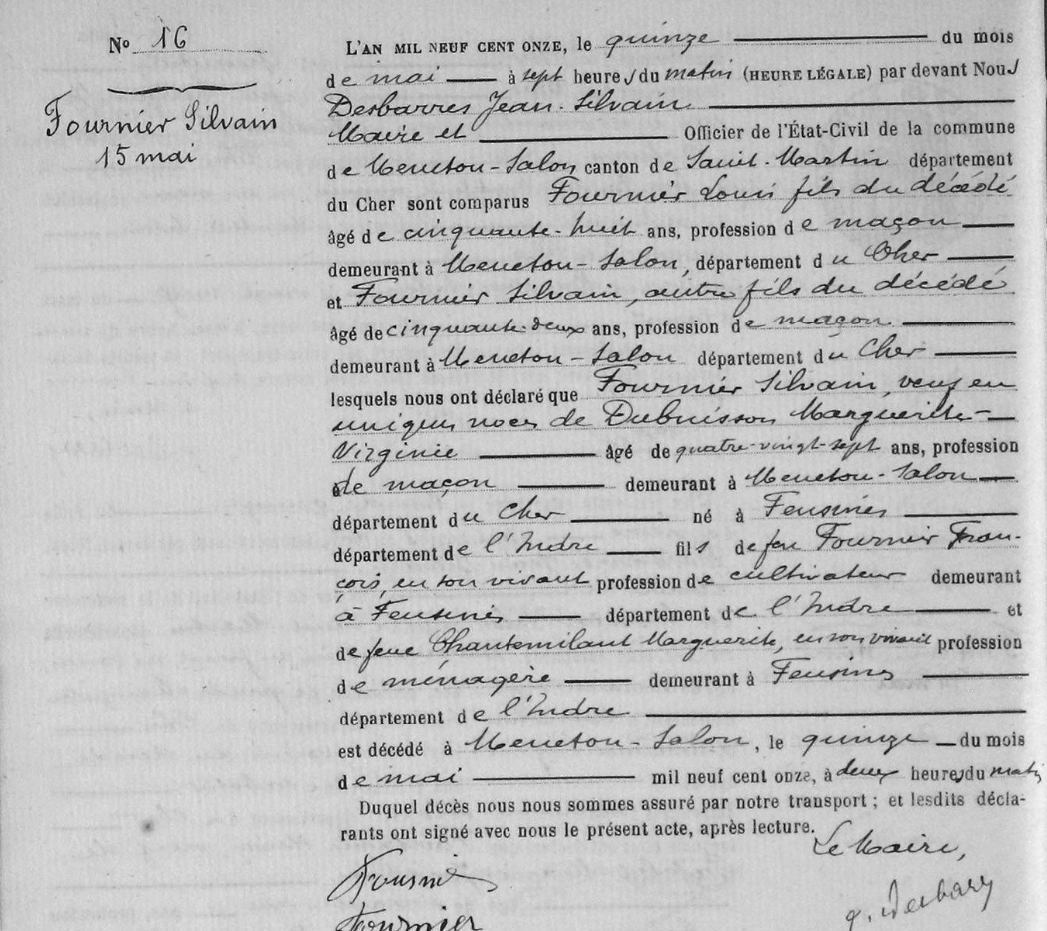 No 16
Fournier Silvain
15 mai
L'AN MIL NEUF CENT ONZE, le quinze du mois
de mai à sept heures du matin (HEURE LÉGALE) par devant Nous
Desbarres Jean-Silvain
Maire et Officier de l'État-Civil de la commune
de Menetou-Salon canton de Saint-Martin département
du Cher sont comparus Fournier Louis fils du décédé
âgé de cinquante-huit ans, profession de maçon
demeurant à Menetou-Salon, département du Cher
et Fournier Silvain, autre fils du décédé
âgé de cinquante-deux ans, profession de maçon
demeurant à Menetou-Salon département du Cher
lesquels nous ont déclaré que Fournier Silvain, veuf en
uniques noces de Dubuisson Marguerite-
Virginie âgé de quatre-vingt-sept ans, profession
de maçon demeurant à Menetou-Salon
département du Cher né à Feusines
département de l'Indre fils de feu Fournier Fran-
çois, en son vivant profession de cultivateur demeurant
à Feusines département de l'Indre et
de feue Chantemilant Marguerite, en son vivant profession
de ménagère demeurant à Feusines
département de l'Indre
est décédé à Menetou-Salon, le quinze du mois
de mai mil neuf cent onze, à deux heures du matin
Duquel décès nous nous sommes assuré par notre transport ; et lesdits décla-
rants ont signé avec nous le présent acte, après lecture.
Le Maire,
Fournier
Fournier